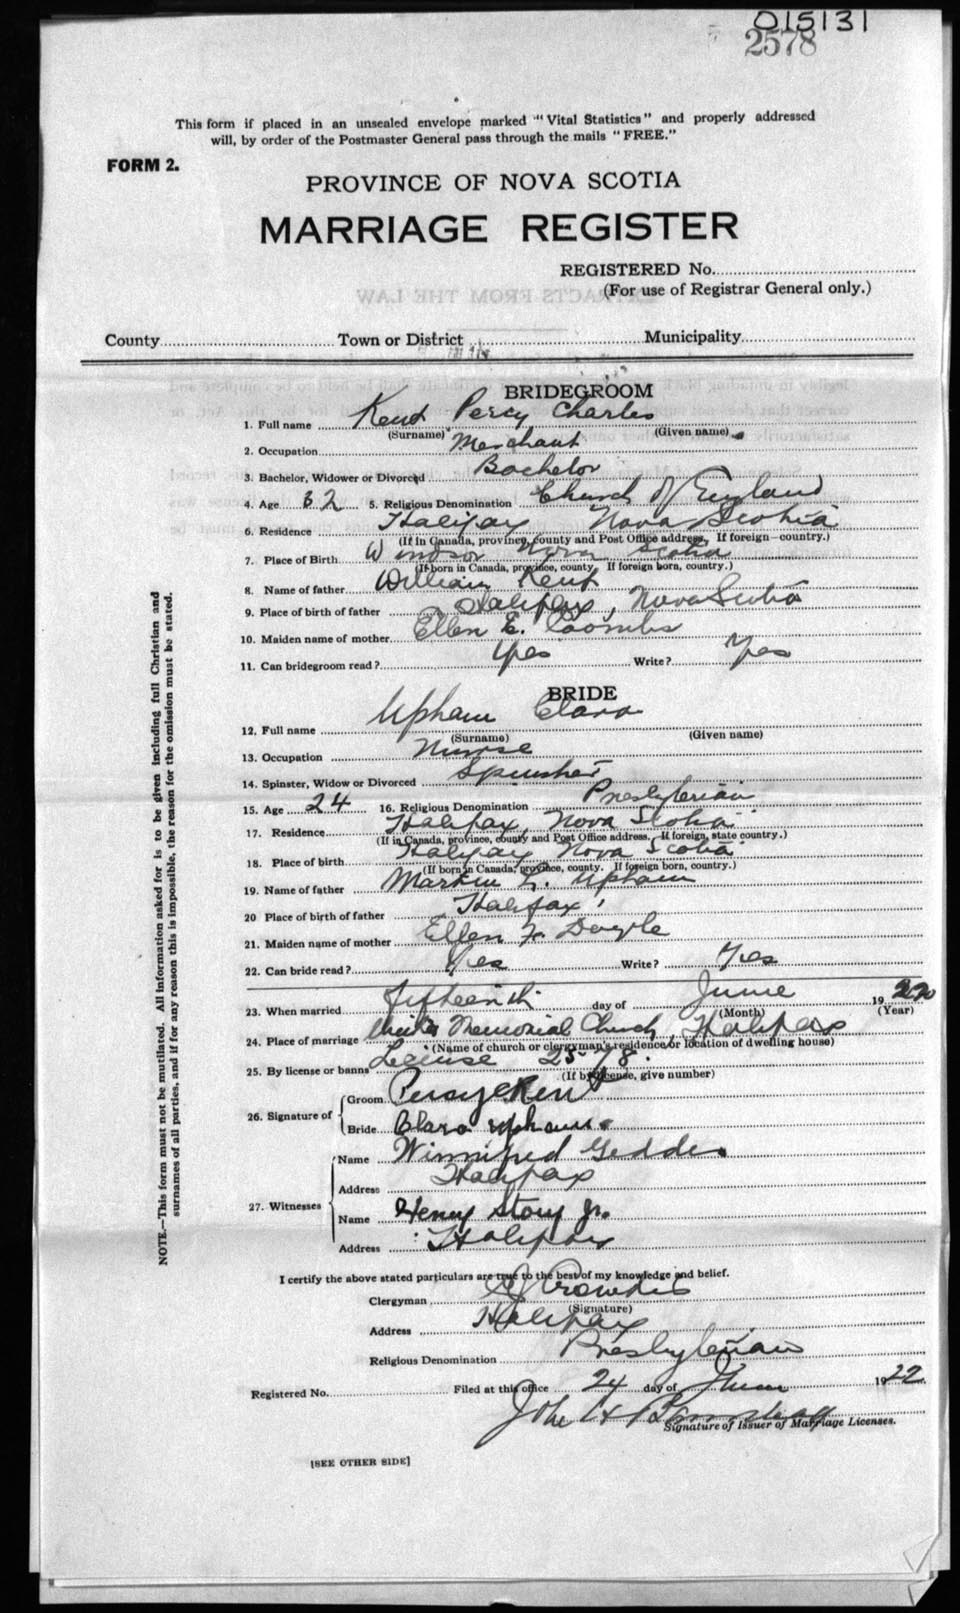 015131
2578
This form if placed in an unsealed envelope marked "Vital Statistics" and properly addressed
will, by order of the Postmaster General pass through the mails "FREE."
FORM 2.
PROVINCE OF NOVA SCOTIA
MARRIAGE REGISTER
REGISTERED No.
(For use of Registrar General only.)
EXTRACTS FROM THE LAW
County Town or District Municipality
BRIDEGROOM
1. Full name Kent Percy Charles
(Surname) (Given name)
2. Occupation Merchant
3. Bachelor, Widower or Divorced Bachelor
4. Age 32 5. Religious Denomination Church of England
6. Residence Halifax Nova Scotia
(If in Canada, province, county and Post Office address. If foreign country.)
7. Place of Birth Windsor Nova Scotia
(If born in Canada, province, county. If foreign born, country.)
8. Name of father William Kent
9. Place of birth of father Halifax, Nova Scotia
10. Maiden name of mother Ellen E. Coombs
11. Can bridegroom read? Yes Write? Yes
BRIDE
12. Full name Upham Clara
(Surname) (Given name)
13. Occupation Nurse
14. Spinster, Widow or Divorced Spinster
15. Age 24 16. Religious Denomination Presbyterian
17. Residence Halifax, Nova Scotia
(If in Canada, province, county and Post Office address. If foreign, state country.)
18. Place of birth Halifax Nova Scotia
(If born in Canada, province, county. If foreign born, country.)
19. Name of father Martin L. Upham
20 Place of birth of father Halifax
21. Maiden name of mother Ellen F. Doyle
22. Can bride read? Yes Write? Yes
23. When married Fifteenth day of June 1922
(Month) (Year)
24. Place of marriage Memorial Church, Halifax
(Name of church or clergyman's residence or location of dwelling house)
25. By license or banns License 2578.
(If by license, give number)
26. Signature of
Groom Percy C Kent
Bride Clara Upham
27. Witnesses
Name Winnifred Geddes
Address Halifax
Name Henry Story Jr.
Address Halifax
I certify the above stated particulars are true to the best of my knowledge and belief.
Clergyman Crowdis
(Signature)
Address Halifax
Religious Denomination Presbyterian
Registered No. Filed at this office 24 day of June 1922
John H Barnstead
Signature of Issuer of Marriage Licenses.
[SEE OTHER SIDE]
NOTE.—This form must not be mutilated. All information asked for is to be given including full Christian and
surnames of all parties, and if for any reason this is impossible, the reason for the omission must be stated.